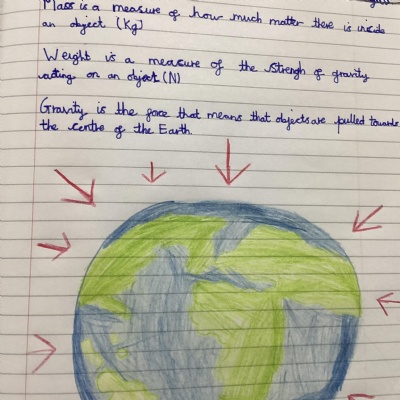 Mass is a measure of how much matter there is inside
an object (Kg)
Weight is a measure of the strengh of gravity
acting on an object (N)
Gravity is the force that means that objects are pulled towards
the centre of the Earth.